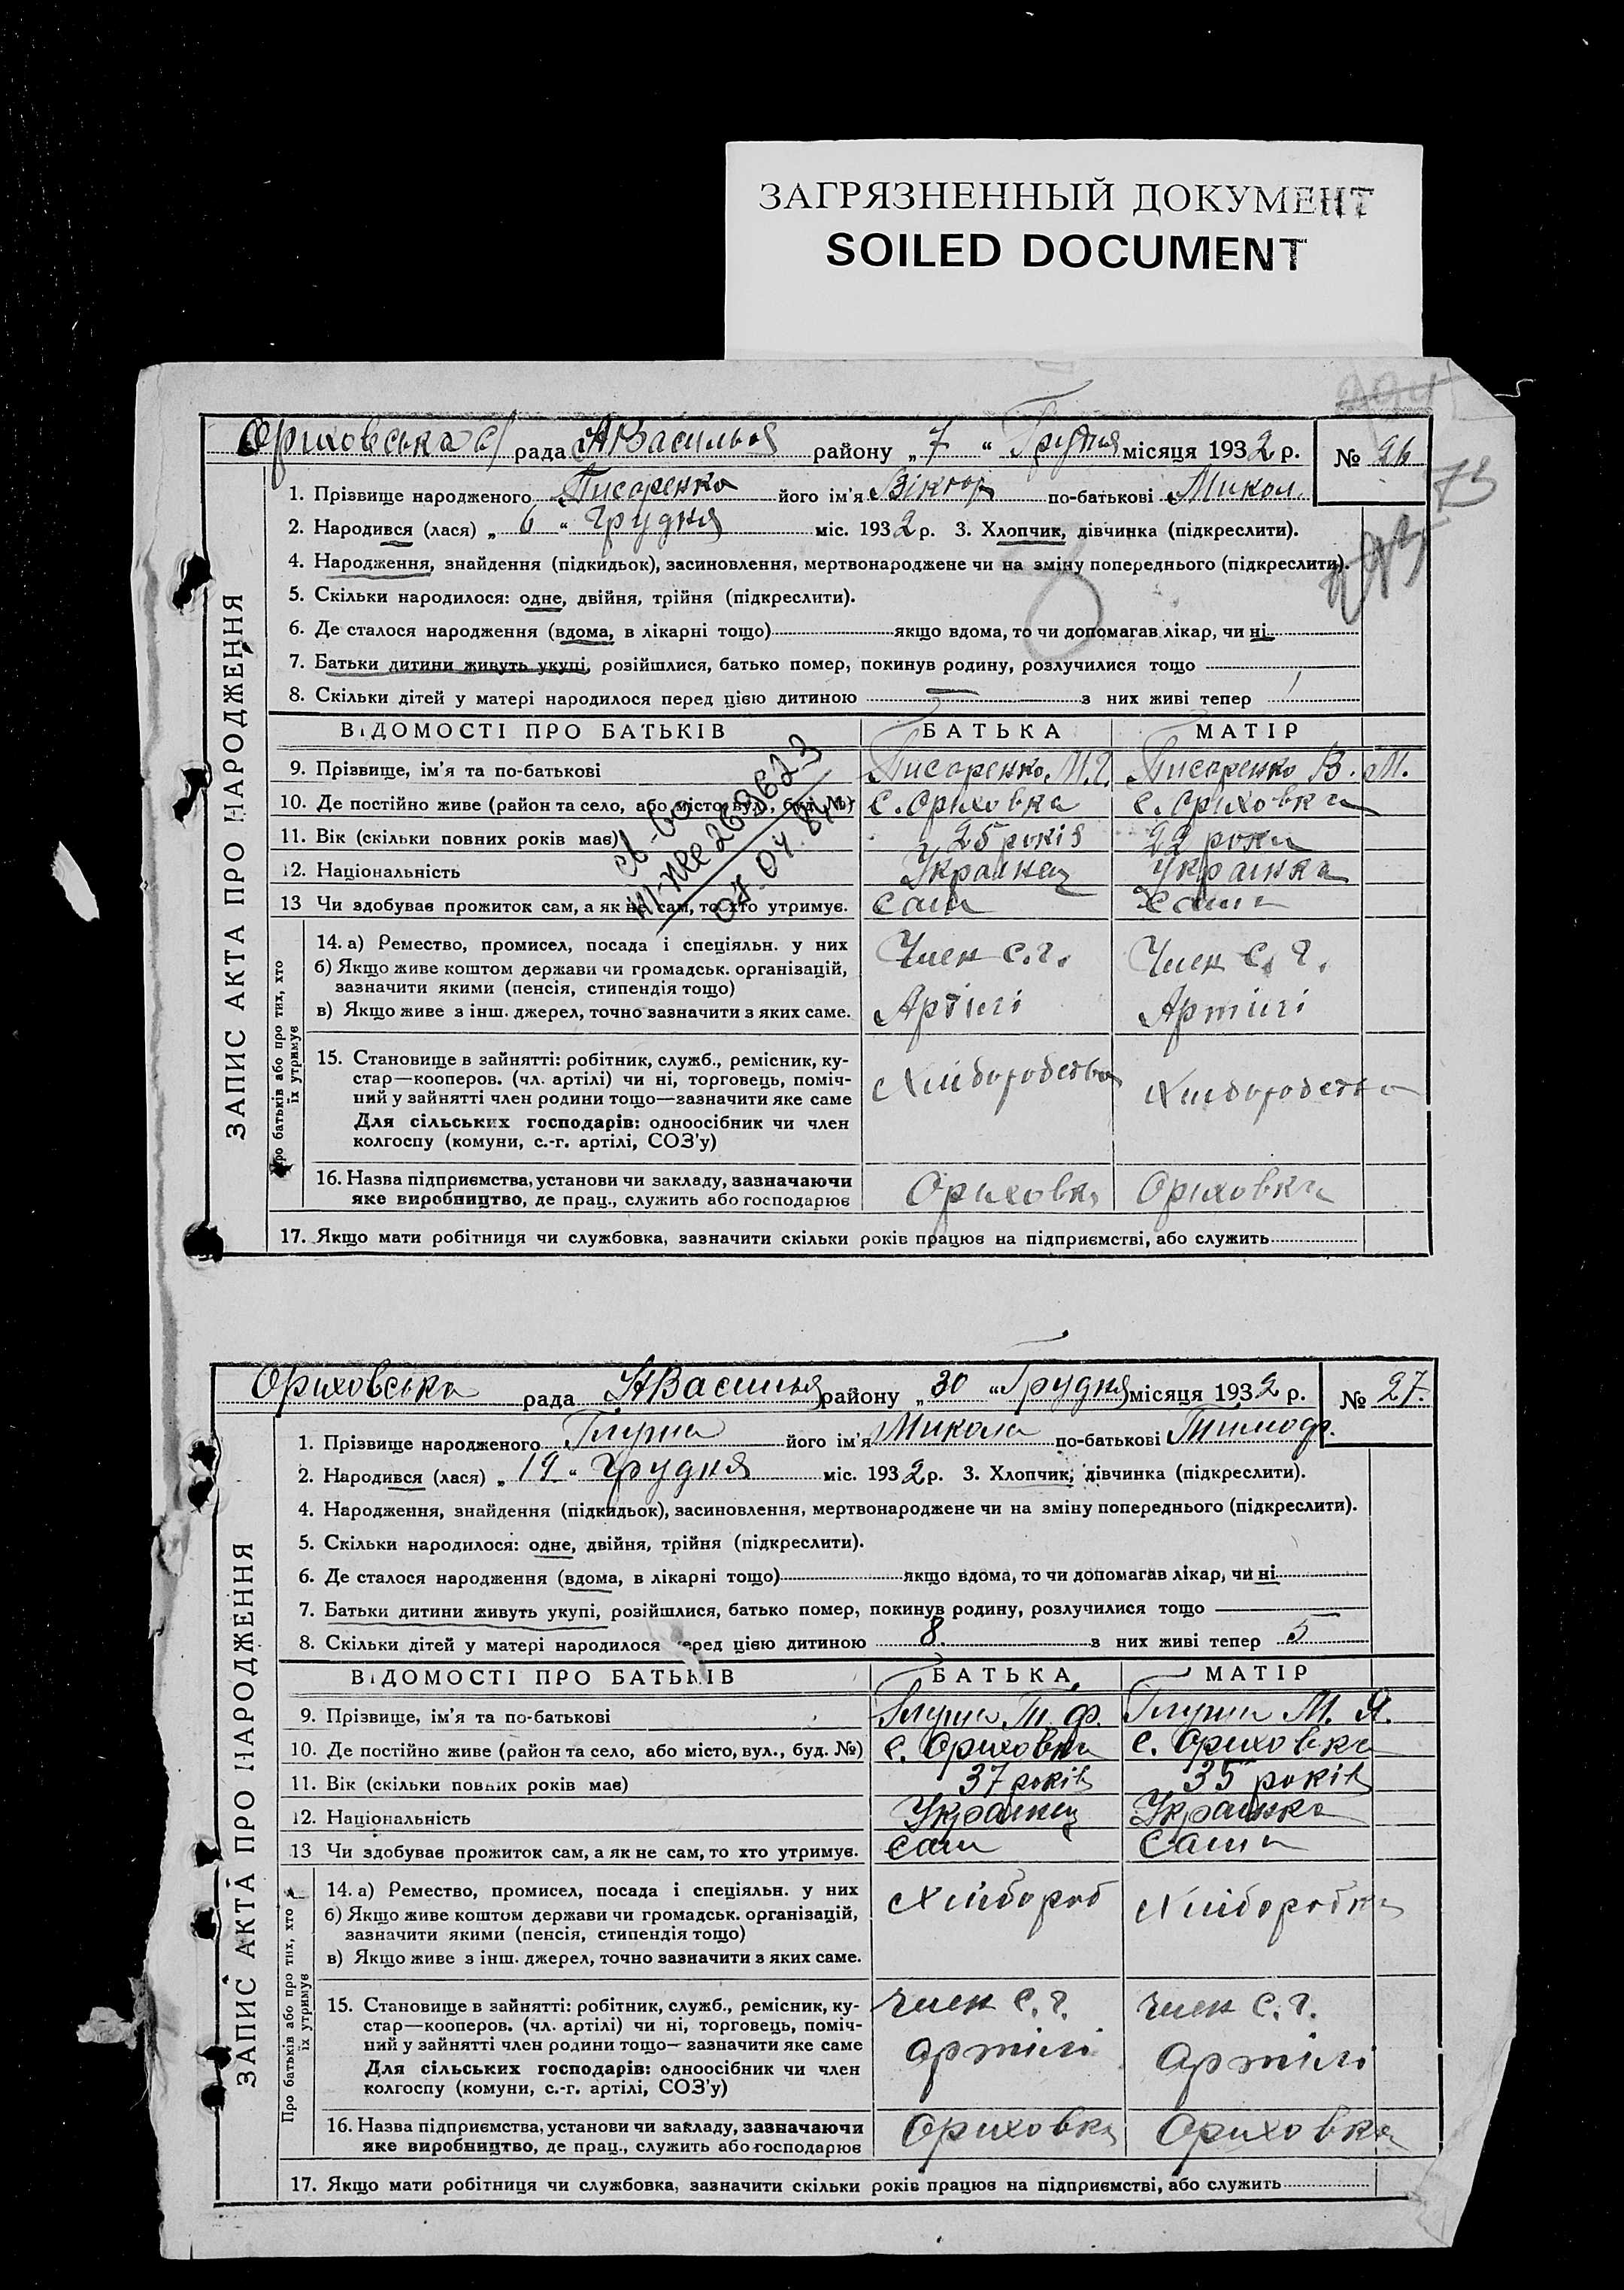 ЗАГРЯЗНЕННЫЙ ДОКУМЕНТ
SOILED DOCUMENT
Ориховська с/ рада НВасилья району „7“ Грудня місяця 1932 р. № 26
73
1. Прізвище народженого Писаренко його ім'я Віктор по-батькові Микол.
2. Народився (лася) „6“ Грудня міс. 1932 р. 3. Хлопчик, дівчинка (підкреслити).
4. Народження, знайдення (підкидьок), засиновлення, мертвонароджене чи на зміну попереднього (підкреслити).
5. Скільки народилося: одне, двійня, трійня (підкреслити).
6. Де сталося народження (вдома, в лікарні тощо) якщо вдома, то чи допомагав лікар, чи ні
7. Батьки дитини живуть укупі, розійшлися, батько помер, покинув родину, розлучилися тощо
8. Скільки дітей у матері народилося перед цією дитиною — з них живі тепер
ВІДОМОСТІ ПРО БАТЬКІВ БАТЬКА МАТІР
9. Прізвище, ім'я та по-батькові Писаренко М.Г. Писаренко В. М.
10. Де постійно живе (район та село, або місто, вул., буд. №) с. Ориховка с. Ориховка
11. Вік (скільки повних років має) 25 років 22 роки
12. Національність Украинец Украинка
13 Чи здобуває прожиток сам, а як не сам, то хто утримує. сам сама
14. а) Ремество, промисел, посада і спеціяльн. у них Член с.г. Член с.г.
б) Якщо живе коштом держави чи громадськ. організацій,
зазначити якими (пенсія, стипендія тощо)
в) Якщо живе з інш. джерел, точно зазначити з яких саме. Артілі Артілі
15. Становище в зайнятті: робітник, служб., ремісник, ку-
стар—кооперов. (чл. артілі) чи ні, торговець, поміч- Хліборобство Хліборобство
ний у зайнятті член родини тощо—зазначити яке саме
Для сільських господарів: одноосібник чи член
колгоспу (комуни, с.-г. артілі, СОЗ'у)
16. Назва підприємства, установи чи закладу, зазначаючи Ориховка Ориховка
яке виробництво, де прац., служить або господарює
17. Якщо мати робітниця чи службовка, зазначити скільки років працює на підприємстві, або служить
ЗАПИС АКТА ПРО НАРОДЖЕННЯ
Про батьків або про тих, хто
їх утримує
Ориховська рада НВасилья району „30“ Грудня місяця 1932 р. № 27.
1. Прізвище народженого Глуша його ім'я Микола по-батькові Тимоф.
2. Народився (лася) „19“ Грудня міс. 1932 р. 3. Хлопчик, дівчинка (підкреслити).
4. Народження, знайдення (підкидьок), засиновлення, мертвонароджене чи на зміну попереднього (підкреслити).
5. Скільки народилося: одне, двійня, трійня (підкреслити).
6. Де сталося народження (вдома, в лікарні тощо) якщо вдома, то чи допомагав лікар, чи ні
7. Батьки дитини живуть укупі, розійшлися, батько помер, покинув родину, розлучилися тощо
8. Скільки дітей у матері народилося перед цією дитиною 8. з них живі тепер 5
ВІДОМОСТІ ПРО БАТЬКІВ БАТЬКА МАТІР
9. Прізвище, ім'я та по-батькові Глуша Т. Ф. Глуша М. Я.
10. Де постійно живе (район та село, або місто, вул., буд. №) с. Ориховка с. Ориховка
11. Вік (скільки повних років має) 37 років 35 років
12. Національність Украинец Украинка
13 Чи здобуває прожиток сам, а як не сам, то хто утримує. сам сама
14. а) Ремество, промисел, посада і спеціяльн. у них Хлібороб Хліборобка
б) Якщо живе коштом держави чи громадськ. організацій,
зазначити якими (пенсія, стипендія тощо)
в) Якщо живе з інш. джерел, точно зазначити з яких саме.
15. Становище в зайнятті: робітник, служб., ремісник, ку- член с.г. член с.г.
стар—кооперов. (чл. артілі) чи ні, торговець, поміч-
ний у зайнятті член родини тощо—зазначити яке саме артілі артілі
Для сільських господарів: одноосібник чи член
колгоспу (комуни, с.-г. артілі, СОЗ'у)
16. Назва підприємства, установи чи закладу, зазначаючи Ориховка Ориховка
яке виробництво, де прац., служить або господарює
17. Якщо мати робітниця чи службовка, зазначити скільки років працює на підприємстві, або служить
ЗАПИС АКТА ПРО НАРОДЖЕННЯ
Про батьків або про тих, хто
їх утримує